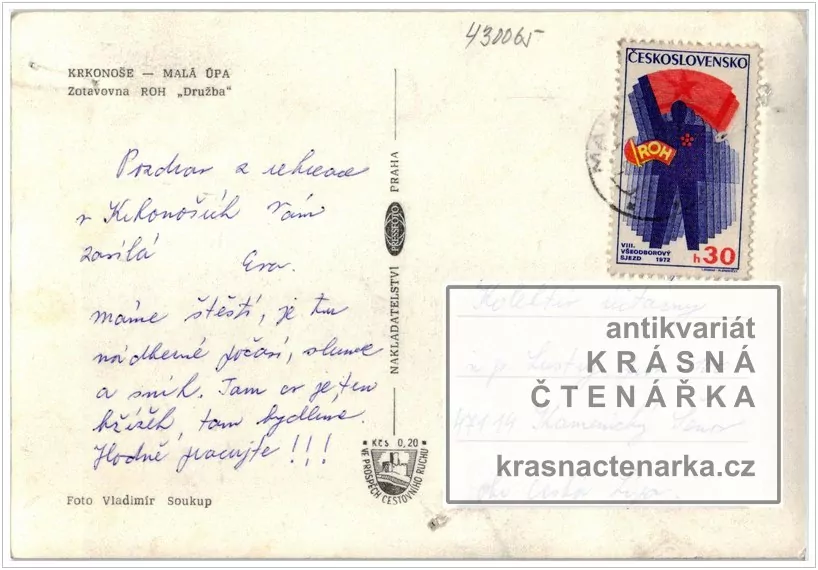 430065
KRKONOŠE — MALÁ ÚPA
Zotavovna ROH „Družba"
Pozdrav z rekreace
v Krkonoších Vám
zasílá Eva.
Máme štěstí, je tu
nádherné počasí, slunce
a sníh. Tam co je ten
křížek, tam bydlíme.
Hodně pracujte!!!
Foto Vladimír Soukup
NAKLADATELSTVÍ PRESSFOTO PRAHA
Kčs 0,20
VE PROSPĚCH CESTOVNÍHO RUCHU
ČESKOSLOVENSKO
ROH
VIII.
VŠEODBOROVÝ
SJEZD 1972
h 30
Kolektiv účtárny
n.p.
471 14 Kamenický Šenov
okr. Česká Lípa.
antikvariát
KRÁSNÁ
ČTENÁŘKA
krasnactenarka.cz